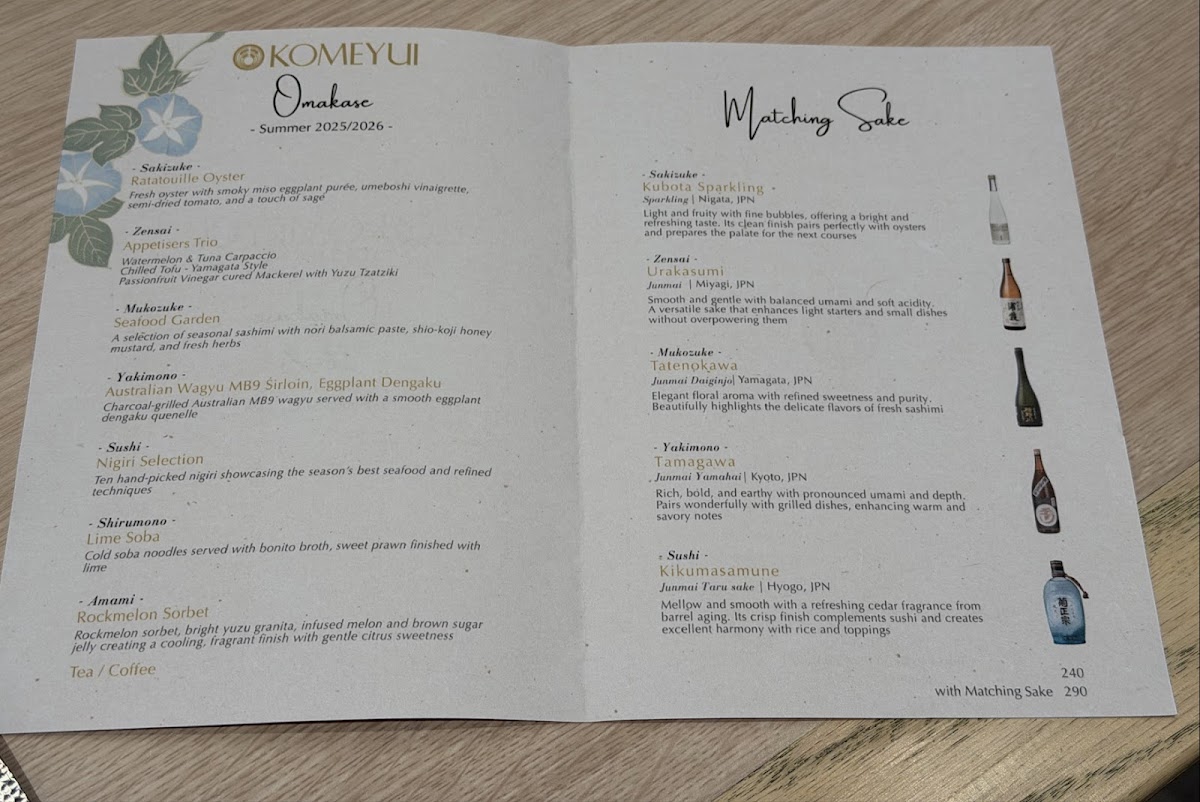 KOMEYUI
Omakase
- Summer 2025/2026 -
- Sakizuke -
Ratatouille Oyster
Fresh oyster with smoky miso eggplant purée, umeboshi vinaigrette,
semi-dried tomato, and a touch of sage
- Zensai -
Appetisers Trio
Watermelon & Tuna Carpaccio
Chilled Tofu - Yamagata Style
Passionfruit Vinegar cured Mackerel with Yuzu Tzatziki
- Mukozuke -
Seafood Garden
A selection of seasonal sashimi with nori balsamic paste, shio-koji honey
mustard, and fresh herbs
- Yakimono -
Australian Wagyu MB9 Sirloin, Eggplant Dengaku
Charcoal-grilled Australian MB9 wagyu served with a smooth eggplant
dengaku quenelle
- Sushi -
Nigiri Selection
Ten hand-picked nigiri showcasing the season's best seafood and refined
techniques
- Shirumono -
Lime Soba
Cold soba noodles served with bonito broth, sweet prawn finished with
lime
- Amami -
Rockmelon Sorbet
Rockmelon sorbet, bright yuzu granita, infused melon and brown sugar
jelly creating a cooling, fragrant finish with gentle citrus sweetness
Tea / Coffee
Matching Sake
- Sakizuke -
Kubota Sparkling
Sparkling | Nigata, JPN
Light and fruity with fine bubbles, offering a bright and
refreshing taste. Its clean finish pairs perfectly with oysters
and prepares the palate for the next courses
- Zensai -
Urakasumi
Junmai | Miyagi, JPN
Smooth and gentle with balanced umami and soft acidity.
A versatile sake that enhances light starters and small dishes
without overpowering them
- Mukozuke -
Tatenokawa
Junmai Daiginjo| Yamagata, JPN
Elegant floral aroma with refined sweetness and purity.
Beautifully highlights the delicate flavors of fresh sashimi
- Yakimono -
Tamagawa
Junmai Yamahai| Kyoto, JPN
Rich, bold, and earthy with pronounced umami and depth.
Pairs wonderfully with grilled dishes, enhancing warm and
savory notes
- Sushi -
Kikumasamune
Junmai Taru sake | Hyogo, JPN
Mellow and smooth with a refreshing cedar fragrance from
barrel aging. Its crisp finish complements sushi and creates
excellent harmony with rice and toppings
菊正宗
240
with Matching Sake 290